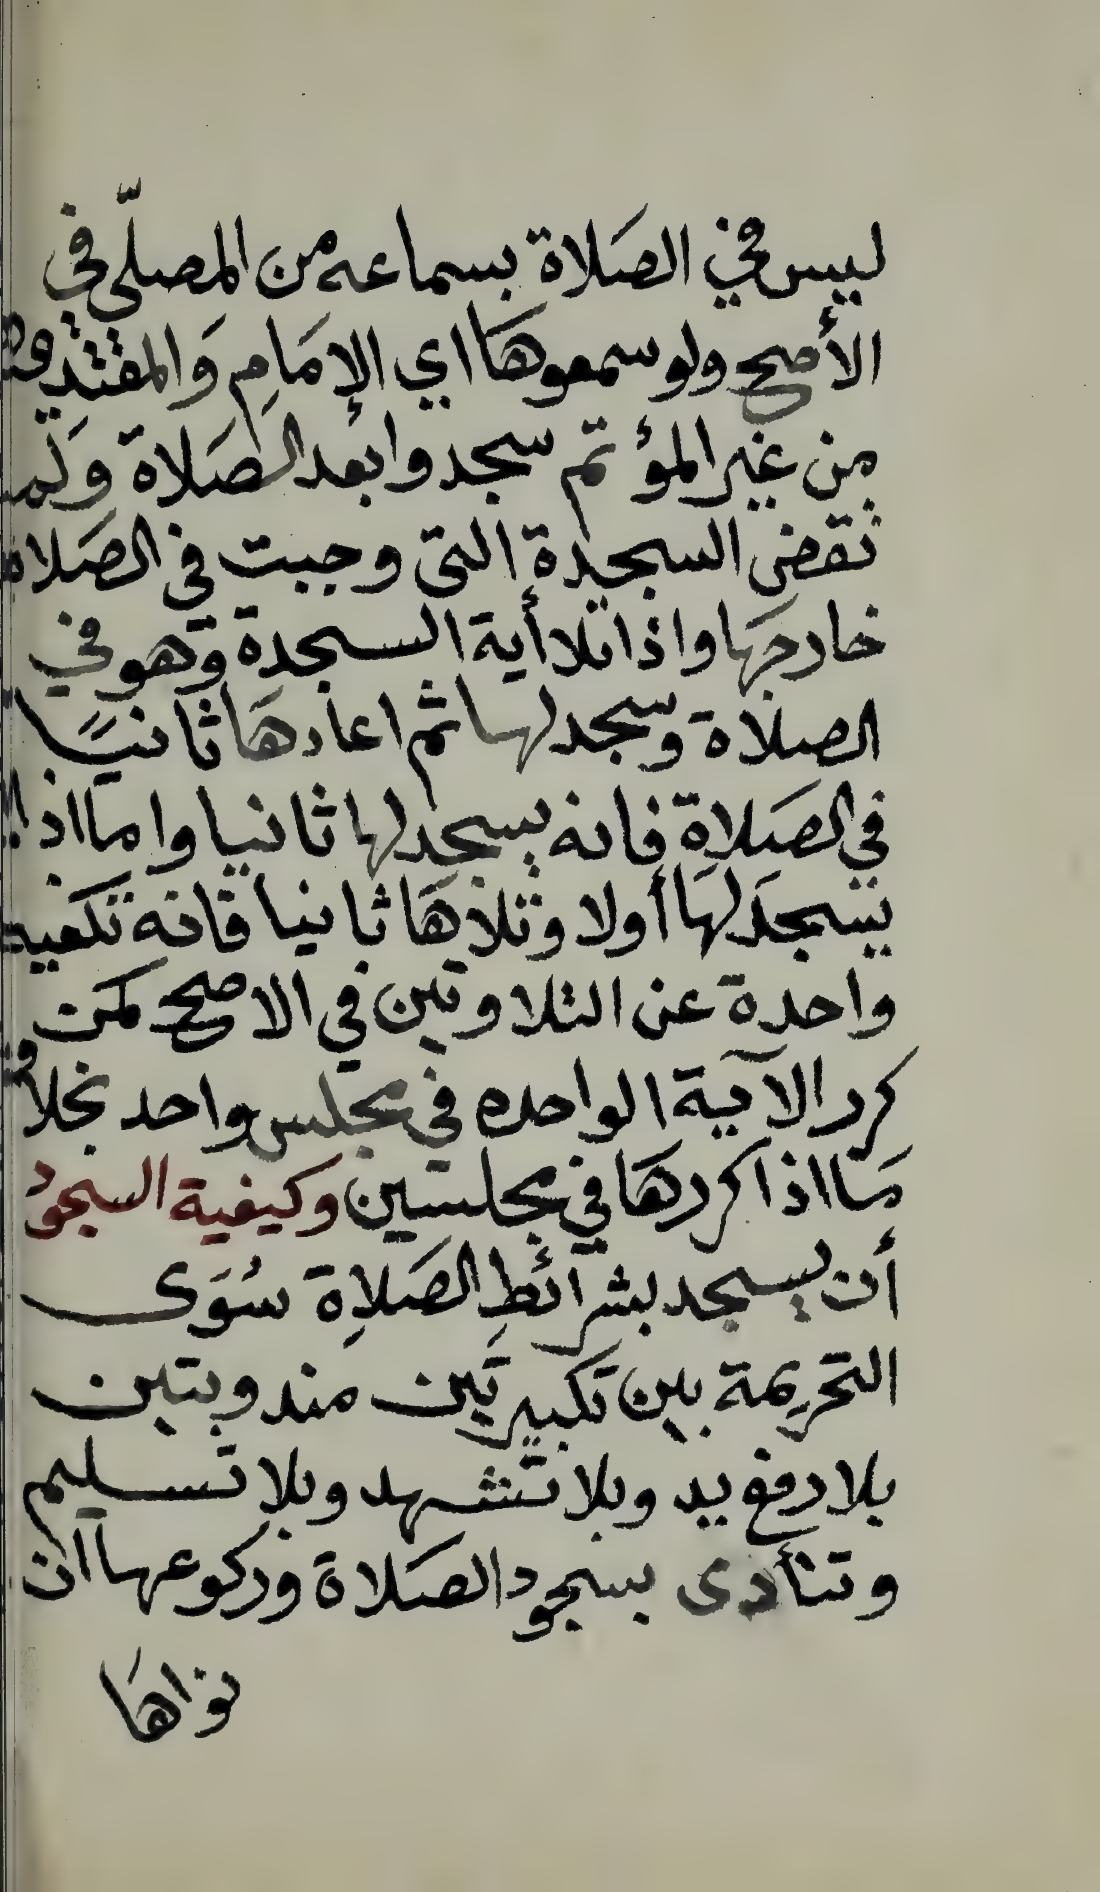 ليس في الصَلاة بسماعه من المصلّي في
الأصح ولو سمعوهَا اي الإمَامِ وَالمقتدِ
من غير المؤتم سجدوا بعد الصَلاة وَلم
تقضى السجدة التي وجبت في الصَلاة
خارجهَا واذا تلا أية السجدة وهو في
الصلاة وسجد لها ثم اعادهَا ثانيًا
في الصَلاة فانه يسجد لها ثانيا واما اذا
يسجَد لهَا أولا وتلاهَا ثانيا فانه تكفيه
واحدة عن التلاوتين في الاصح كمن
كرر الآية الواحده في مجلس واحد بخلاف
مَا اذا كررهَا في مجلسين وكيفية السجود
أن يسجد بشرائطِ الصَلاِة سُوَى
التحرِيمة بين تكبيرتَين مندوبتين
بلا رفع يد وبلا تشهد وبلا تسليم
وتتأدى بسجود الصَلاة وركوعها ان
نواهَا